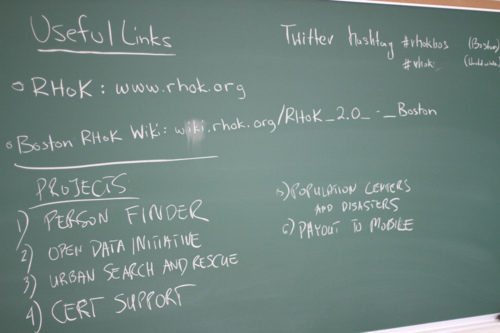 Useful Links
Twitter hashtag #rhokbos (Boston)
#rhok
RHoK: www.rhok.org
Boston RHoK Wiki: wiki.rhok.org/RHoK_2.0_-_Boston
PROJECTS
1) PERSON FINDER
2) OPEN DATA INITIATIVE
3) URBAN SEARCH AND RESCUE
4) CERT SUPPORT
5) POPULATION CENTERS
AND DISASTERS
6) PAYOUT TO MOBILE